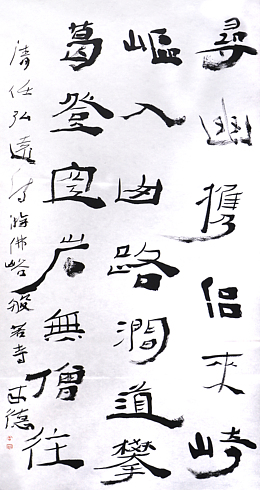 尋幽攜侶來崎
嶇入凶路澗道攀
葛登空岩無僧往
清任弘遠詩游佛峪般若寺 西德